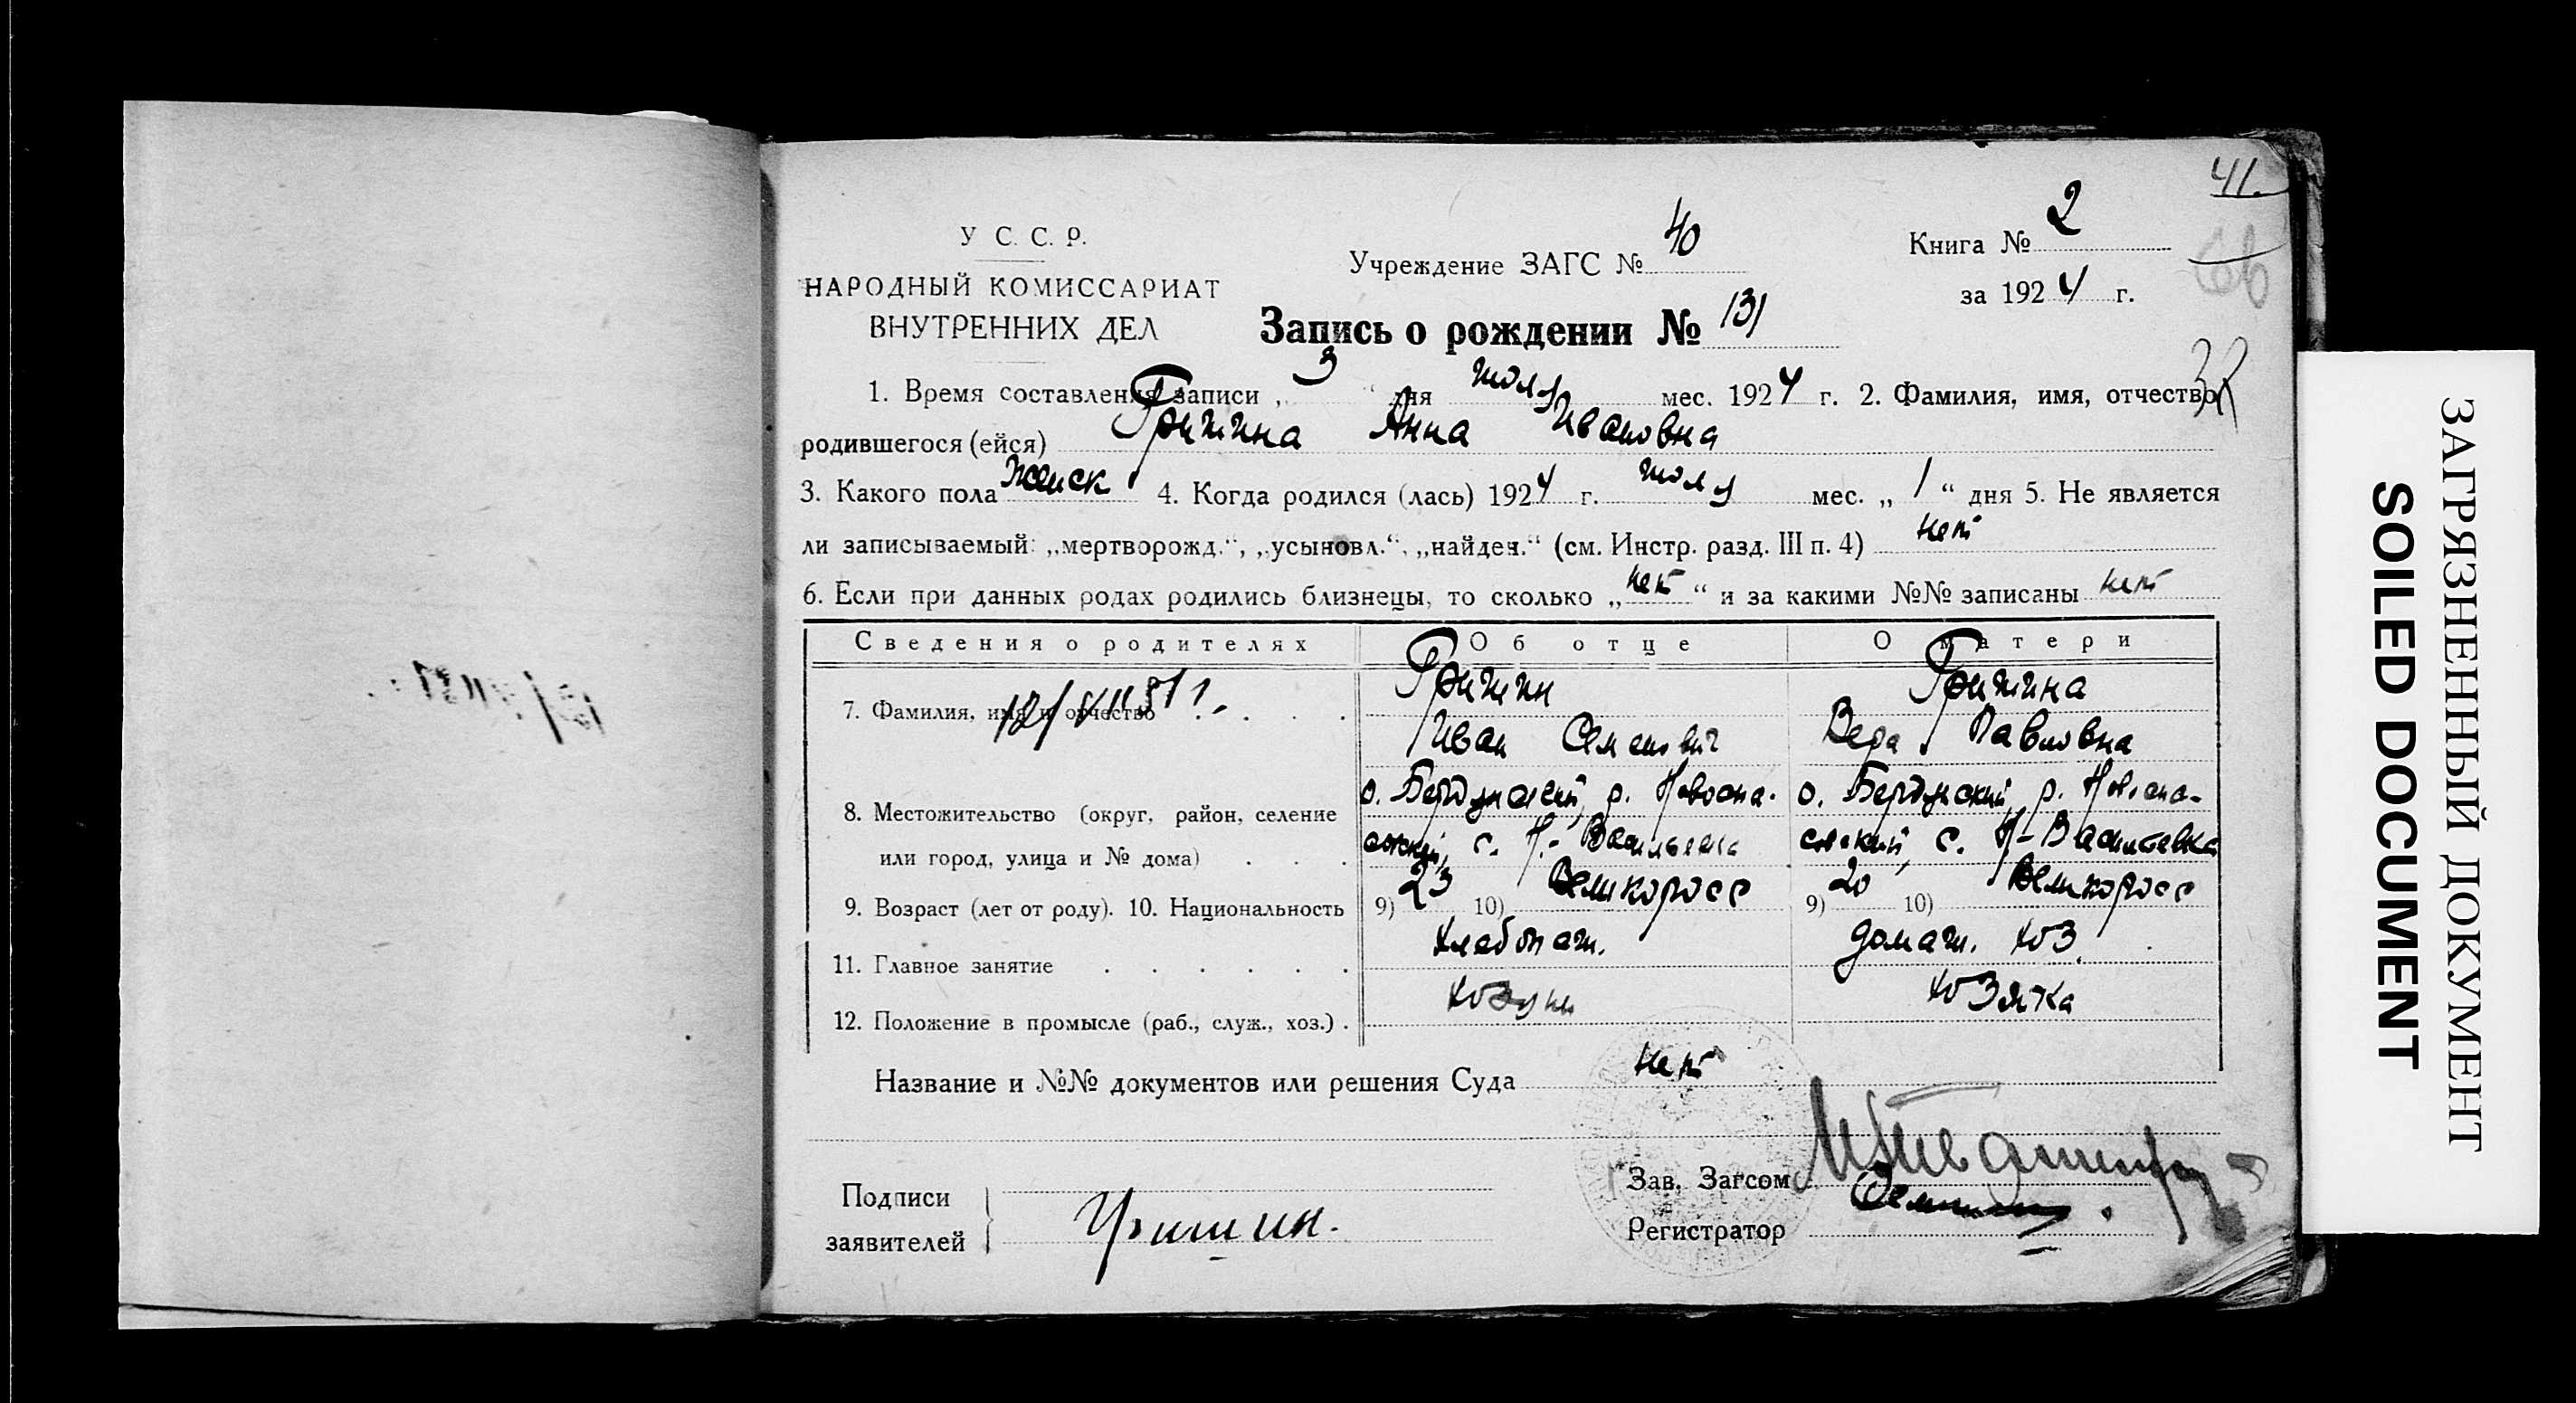 41.
У С. С. Р.
НАРОДНЫЙ КОМИССАРИАТ
ВНУТРЕННИХ ДЕЛ
Учреждение ЗАГС № 40
Книга № 2
за 1924 г.
Запись о рождении № 131
1. Время составления записи „ 3 “ дня июля мес. 1924 г. 2. Фамилия, имя, отчество
родившегося (ейся) Гришина Анна Ивановна
3. Какого пола Женск 4. Когда родился (лась) 1924 г. июля мес. „ 1 “ дня 5. Не является
ли записываемый: „мертворожд.“, „усыновл.“, „найден.“ (см. Инстр. разд. III п. 4) нет
6. Если при данных родах родились близнецы, то сколько „ нет “ и за какими №№ записаны нет
Сведения о родителях Об отце О матери
7. Фамилия, имя и отчество Гришин Гришина
Иван Семенович Вера Павловна
8. Местожительство (округ, район, селение о. Бердянский, р. Новоспа- о. Бердянский, р. Новоспа-
или город, улица и № дома) совский, с. Н.-Васильевка совский, с. Н-Васильевка
9. Возраст (лет от роду). 10. Национальность 9) 23 10) Великоросс 9) 20 10) Великоросс
11. Главное занятие хлебопаш. домаш. хоз.
12. Положение в промысле (раб., служ., хоз.) хозяин хозяйка
Название и №№ документов или решения Суда нет
Подписи
заявителей
Гришин.
Зав. Загсом
Регистратор
ЗАГРЯЗНЕННЫЙ ДОКУМЕНТ
SOILED DOCUMENT